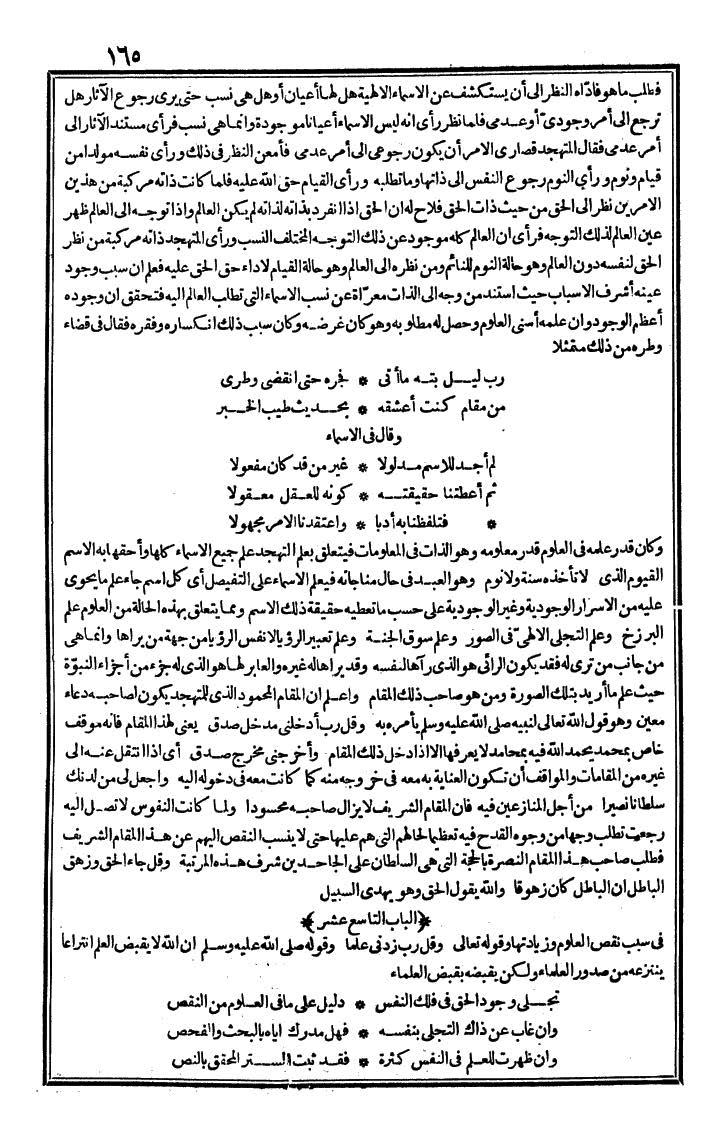 ١٦٥
فطلب ما هو فأداه النظر الى أن يستكشف عن الاسماء الالهية هل لها أعيان أو هل هى نسب حتى يرى رجوع الآثار هل
ترجع الى أمر وجودىّ أو عدمى فلما نظر رأى انه ليس للاسماء أعيانا موجودة وانما هى نسب فرأى مستند الآثار الى
أمر عدمى فقال المتهجد قصارى الامر أن يكون رجوعى الى أمر عدمى فأمعن النظر فى ذلك ورأى نفسه مولدا من
قيام ونوم ورأى النوم رجوع النفس الى ذاتها وما تطلبه ورأى القيام حق الله عليه فلما كانت ذاته مركبة من هذين
الامرين نظر الى الحق من حيث ذات الحق فلاح له ان الحق اذا انفرد بذاته لذاته لم يكن العالم واذا توجه الى العالم ظهر
عين العالم لذلك التوجه فرأى ان العالم كله موجود عن ذلك التوجه المختلف النسب ورأى المتهجد ذاته مركبة من نظر
الحق لنفسه دون العالم وهو حالة النوم للنائم ومن نظره الى العالم وهو حالة القيام لاداء حق الحق عليه فعلم ان سبب وجود
عينه أشرف الاسباب حيث استند من وجه الى الذات معراة عن نسب الاسماء التى تطلب العالم اليه فتحقق ان وجوده
أعظم الوجود وان علمه أسنى العلوم وحصل له مطلوبه وهو كان غرضه وكان سبب ذلك انكساره وفقره فقال فى قضاء
وطره من ذلك متمثلا
رب ليل بته ما أتى * فجره حتى انقضى وطرى
من مقام كنت أعشقه * بحديث طيب الخبر
وقال فى الاسماء
لم أجد للاسم مدلولا * غير من قد كان مفعولا
ثم أعطتنا حقيقته * كونه للعقل معقولا
* فتلفظنا به أدبا * واعتقدنا الامر مجهولا
وكان قدر علمه فى العلوم قدر معلومه وهو الذات فى المعلومات فيتعلق بعلم التهجد علم جميع الاسماء كلها وأحقها به الاسم
القيوم الذى لا تأخذه سنة ولا نوم وهو العبد فى حال مناجاته فيعلم الاسماء على التفصيل أى كل اسم جاء علم ما يحوى
عليه من الاسرار الوجودية وغير الوجودية على حسب ما تعطيه حقيقة ذلك الاسم ومما يتعلق بهذه الحالة من العلوم علم
البرزخ وعلم التجلى الالهىّ فى الصور وعلم سوق الجنة وعلم تعبير الرؤيا لا نفس الرؤيا من جهة من يراها وانما هى
من جانب من ترى له فقد يكون الرائى هو الذى رآها لنفسه وقد يراها له غيره والعابر لها هو الذى له جزء من أجزاء النبوّة
حيث علم ما أريد بتلك الصورة ومن هو صاحب ذلك المقام واعلم ان المقام المحمود الذى للمتهجد يكون لصاحبه دعاء
معين وهو قول الله تعالى لنبيه صلى الله عليه وسلم يأمره به وقل رب أدخلنى مدخل صدق يعنى لهذا المقام فانه موقف
خاص بمحمد يحمد الله فيه بمحامد لا يعرفها الا اذا دخل ذلك المقام وأخرجنى مخرج صدق أى اذا انتقل عنه الى
غيره من المقامات والمواقف أن تكون العناية به معه فى خروجه منه كما كانت معه فى دخوله اليه واجعل لى من لدنك
سلطانا نصيرا من أجل المنازعين فيه فان المقام الشريف لا يزال صاحبه محسودا ولما كانت النفوس لا تصل اليه
رجعت تطلب وجها من وجوه القدح فيه تعظيما لحالهم التى هم عليها حتى لا ينسب النقص اليهم عن هذا المقام الشريف
فطلب صاحب هذا المقام النصرة بالحجة التى هى السلطان على الجاحدين شرف هذه المرتبة وقل جاء الحق وزهق
الباطل ان الباطل كان زهوقا والله يقول الحق وهو يهدى السبيل
﴿الباب التاسع عشر﴾
فى سبب نقص العلوم وزيادتها وقوله تعالى وقل رب زدنى علما وقوله صلى الله عليه وسلم ان الله لا يقبض العلم انتزاعا
ينتزعه من صدور العلماء ولكن يقبضه بقبض العلماء
تجلى وجود الحق فى فلك النفس * دليل على ما فى العلوم من النقص
وان غاب عن ذاك التجلى بنفسه * فهل مدرك اياه بالبحث والفحص
وان ظهرت للعلم فى النفس كثرة * فقد ثبت الستر المحقق بالنص